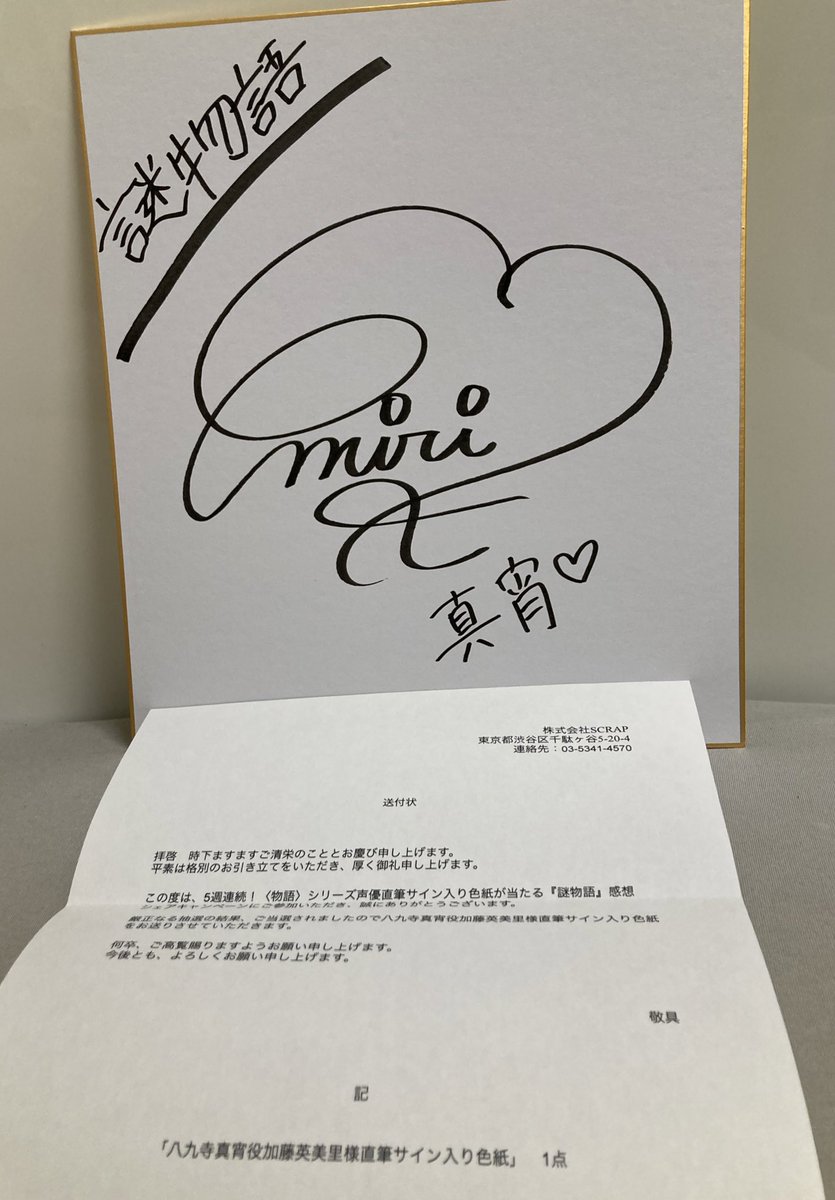 謎物語
miri
真宵♡
株式会社SCRAP
東京都渋谷区千駄ヶ谷5-20-4
連絡先：03-5341-4570
送付状
拝啓　時下ますますご清栄のこととお慶び申し上げます。
平素は格別のお引き立てをいただき、厚く御礼申し上げます。
この度は、5週連続！〈物語〉シリーズ声優直筆サイン入り色紙が当たる『謎物語』感想
シェアキャンペーンにご参加いただき、誠にありがとうございます。
厳正なる抽選の結果、ご当選されましたので八九寺真宵役加藤英美里様直筆サイン入り色紙
をお送りさせていただきます。
何卒、ご高覧賜りますようお願い申し上げます。
今後とも、よろしくお願い申し上げます。
敬具
記
「八九寺真宵役加藤英美里様直筆サイン入り色紙」　1点